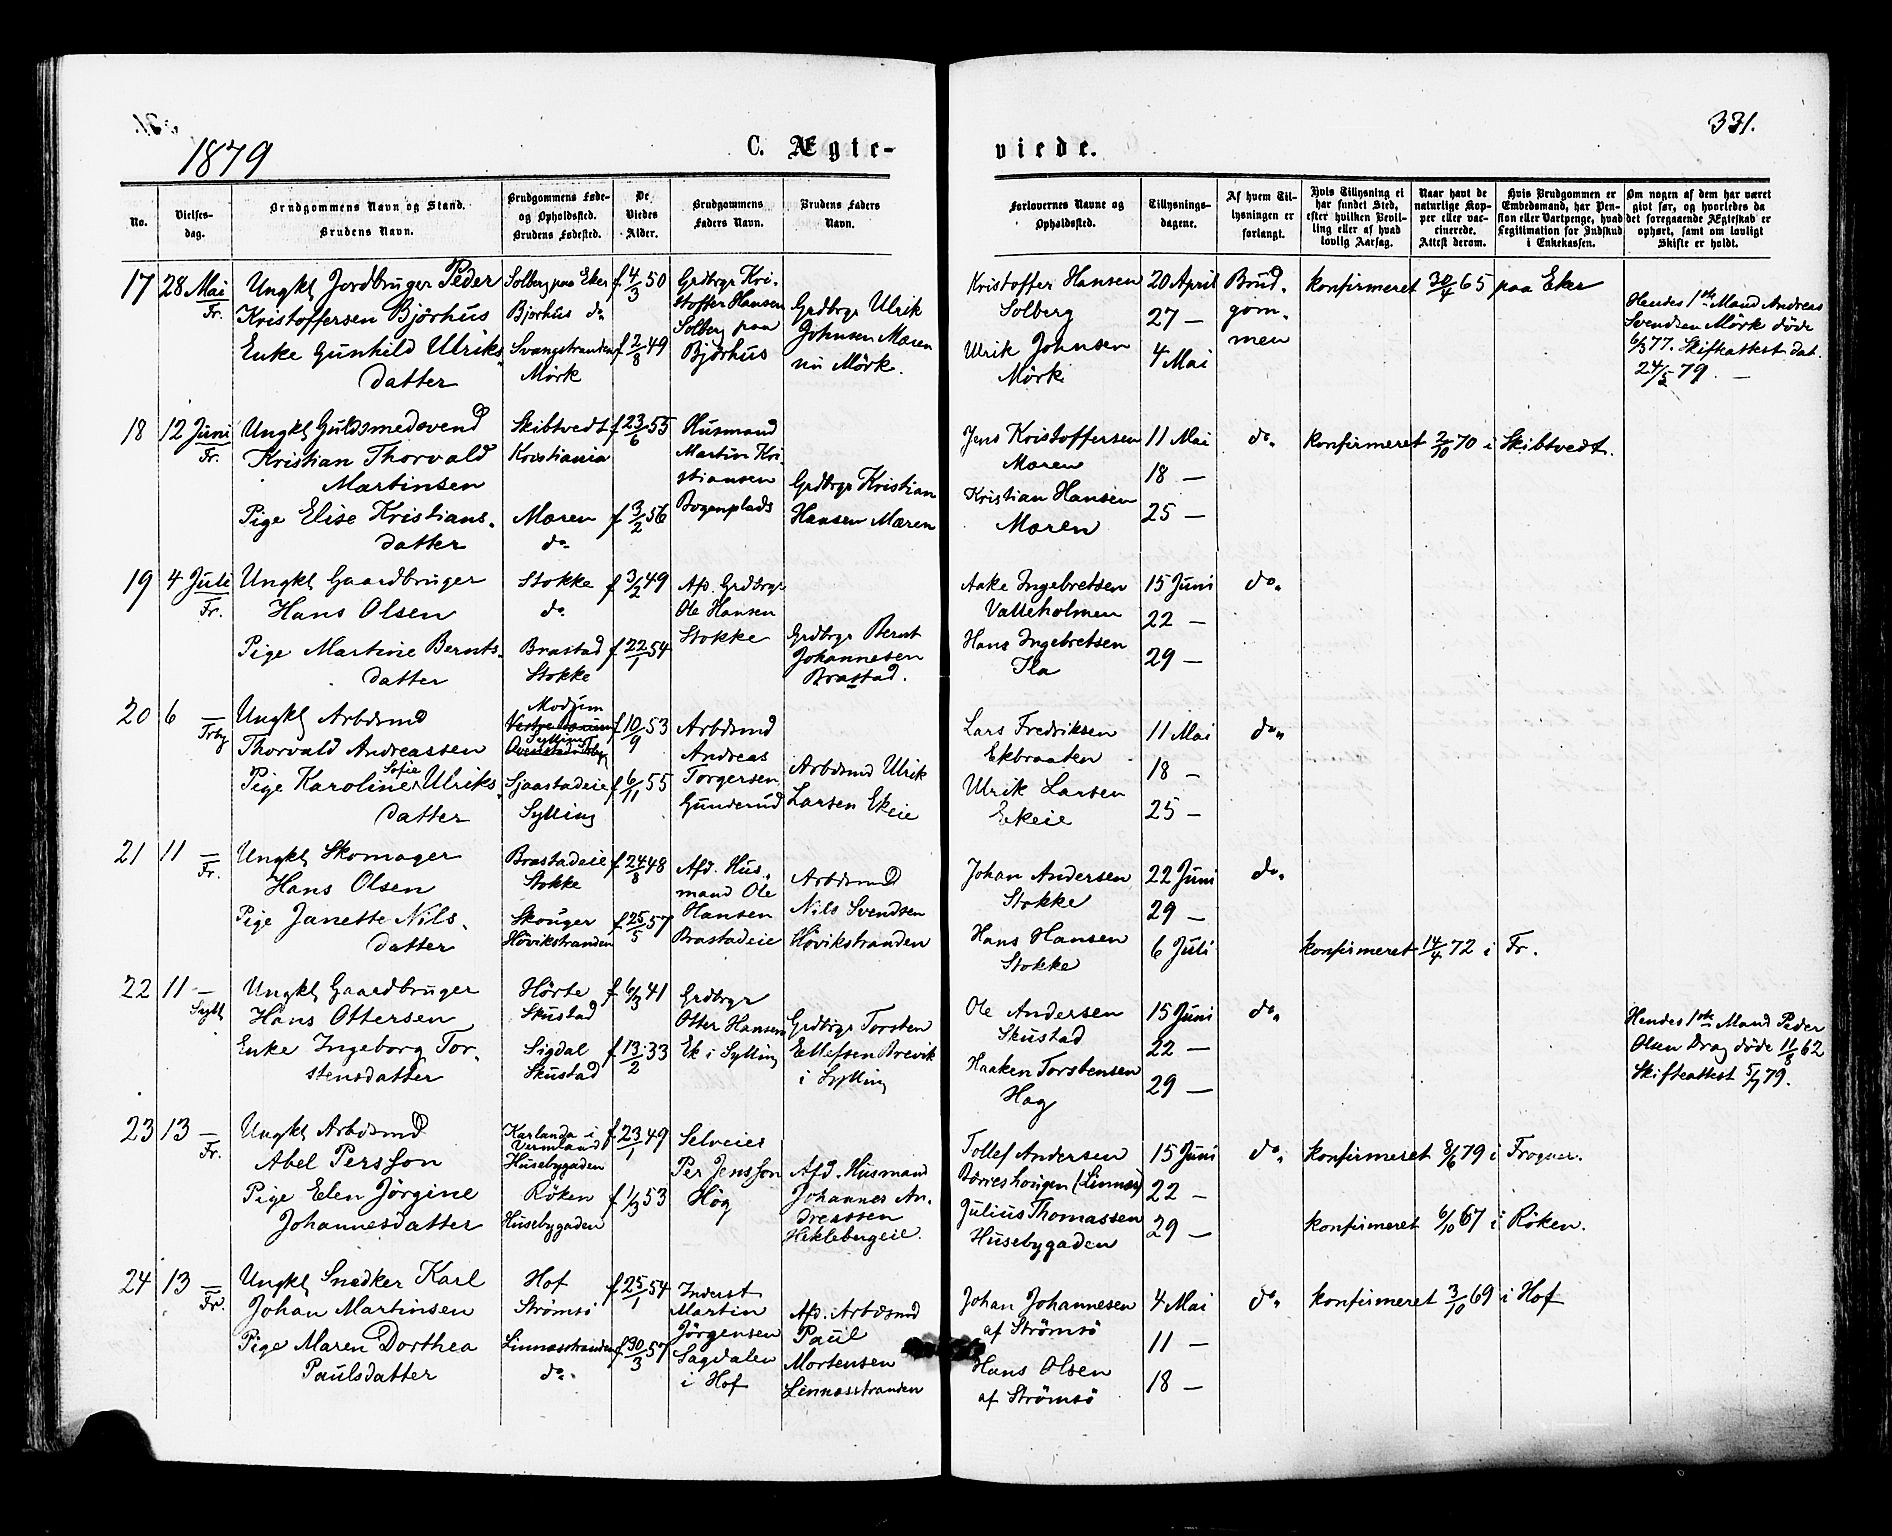 1879
C. Ægte-
viede.
331.
No.
Vielses-
dag.
Brudgommens Navn og Stand.
Brudens Navn.
Brudgommens Føde-
og Opholdssted.
Brudens Fødested.
De
Viedes
Alder.
Brudgommens
Faders Navn.
Brudens Faders
Navn.
Forlovernes Navne og
Opholdssted.
Tillysnings-
dagene.
Af hvem Til-
lysningen er
forlangt.
Hvis Tillysning ei
har fundet Sted,
efter hvilken Bevil-
ling eller af hvad
lovlig Aarsag.
Naar havt de
naturlige Kop-
per eller vac-
cinerede.
Attest derom.
Hvis Brudgommen er
Embedsmand, har Pen-
sion eller Vartpenge, hvad
Legitimation for Indskud
i Enkekassen.
Om nogen af dem har været
givt før, og hvorledes da
det foregaaende Ægteskab er
ophørt, samt om lovligt
Skifte er holdt.
17
28 Mai
Fr.
Ungkl Jordbruger Peder
Kristoffersen Bjørhus
Enke Gunhild Ulriks-
datter
Solberg paa Eker
Bjørhus do
Svangstranden
Mörk
f 4/3 50
f 2/8 49
Grdbrgr Kri-
stoffer Hansen
Solberg paa
Bjørhus
Grdbrgr Ulrik
Johnsen Mæren
nu Mörk.
Kristoffer Hansen
Solberg
Ulrik Johnsen
Mörk
20 April
27 —
4 Mai
Brud-
gom-
men
konfirmeret 30/4 65 paa Eker
Hendes 1ste Mand Andreas
Svendsen Mörk døde
6/3 77. Skifteattest dat.
24/5 79. —
18
12 Juni
Fr.
Ungkl Guldsmedsvend
Kristian Thorvald
Martinsen
Pige Elise Kristians-
datter
Skibtvedt
Kristiania
Mæren
do
f 23/6 55
f 3/2 56
Husmand
Martin Kri-
stiansen
Bogenplads
Grdbrgr Kristian
Hansen Mæren
Jens Kristoffersen
Mæren
Kristian Hansen
Mæren
11 Mai
18 —
25 —
do
konfirmeret 2/10 70 i Skibtvedt.
19
4 Juli
Fr.
Ungkl Gaardbruger
Hans Olsen
Pige Martine Bernts-
datter
Stokke
do
Brastad
Stokke
f 3/2 49
f 22/1 54
Afd. Grdbrgr
Ole Hansen
Stokke
Grdbrgr Bernt
Johannesen
Brastad.
Aake Ingebretsen
Valleholmen
Hans Ingebretsen
Ila
15 Juni
22 —
29 —
do
20
6 —
Frby
Ungkl Arbdsmd
Thorvald Andreassen
Pige Karoline Sofie Ulriks-
datter
Modum
Sylling
Sjaastadeie
Sylling
f 10/9 53
f 6/11 55
Arbdsmd
Andreas
Torgersen
Gunderud
Arbdsmd Ulrik
Larsen Ekeie
Lars Fredriksen
Ekbraaten
Ulrik Larsen
Ekeie
11 Mai
18 —
25 —
do
21
11 —
Fr.
Ungkl Skomager
Hans Olsen
Pige Janette Nils-
datter
Brastadeie
Stokke
Skouger
Hövikstranden
f 24/8 48
f 25/5 57
Afd. Hus-
mand Ole
Hansen
Brastadeie
Arbdsmd
Nils Svendsen
Hövikstranden
Johan Andersen
Stokke
Hans Hansen
Stokke
22 Juni
29 —
6 Juli
do
konfirmeret 14/4 72 i Fr.
22
11 —
Syll
Ungkl Gaardbruger
Hans Ottersen
Enke Ingeborg Tor-
stensdatter
Hörte
Skustad
Sigdal
Skustad
f 6/3 41
f 13/2 33
Grdbrgr
Otter Hansen
Ek i Sylling
Grdbrgr Torsten
Ellefsen Brevik
i Sylling
Ole Andersen
Skustad
Haaken Torstensen
Hag
15 Juni
22 —
29 —
do
Hendes 1ste Mand Peder
Olsen Drag døde 11/8 62
Skifteattest 5/7 79.
23
13 —
Fr.
Ungkl Arbdsmd
Abel Persson
Pige Elen Jörgine
Johannesdatter
Karlanda i
Vermland
Husebygaden
Röken
Husebygaden
f 23/1 49
f 1/3 53
Selveier
Per Jensson
Hög
Afd. Husmand
Johannes An-
dreassen
Heklebergeie.
Tollef Andersen
(Linnes)
Julius Thomassen
Husebygaden
15 Juni
22 —
29 —
do
konfirmeret 8/6 79 i Frogner.
konfirmeret 6/10 67 i Röken.
24
13 —
Fr.
Ungkl Snedker Karl
Johan Martinsen
Pige Maren Dorthea
Paulsdatter
Hof
Strömsö
Linnesstranden
do
f 25/1 54
f 30/3 57
Inderst
Martin
Jörgensen
Sagdalen
i Hof
Afd. Arbdsmd
Paul
Mortensen
Linnesstranden
Johan Johannesen
af Strömsö
Hans Olsen
af Strömsö
4 Mai
11 —
18 —
do
konfirmeret 3/10 69 i Hof